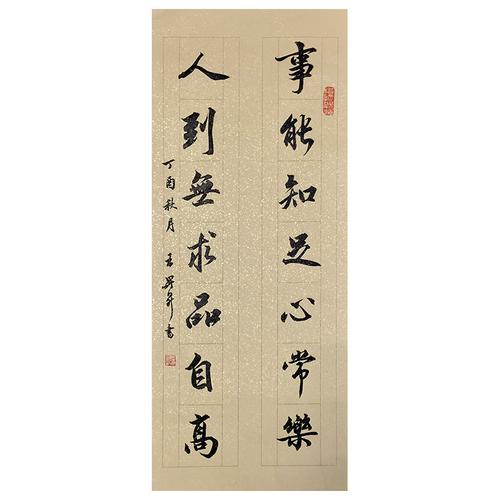 事能知足心常樂
人到無求品自高
丁酉秋月
書